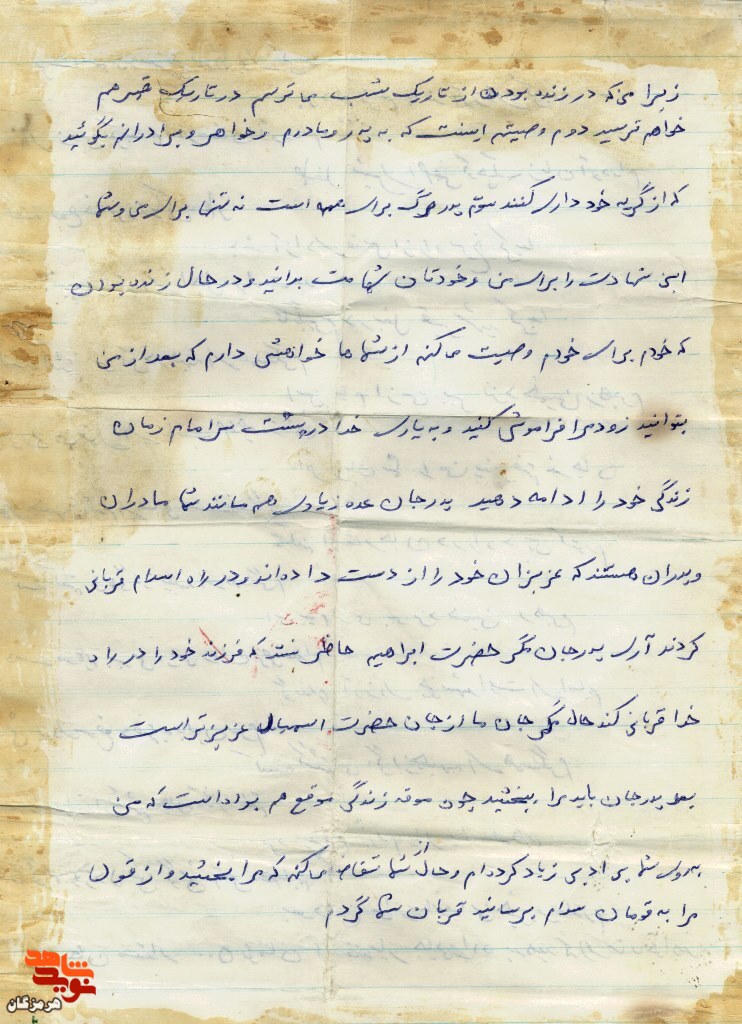 زیرا من که در زنده بودن از تاریک شب می ترسم در تاریک قبر هم
خواهم ترسید دوم وصیتم اینست که به پدر و مادرم و خواهر و برادرانم بگوئید
که از گریه خود داری کنند سوم پدر مرگ برای همه است نه تنها برای من و شما
این شهادت را برای من و خودتان شهامت بدانید و در حال زنده بودن
که خودم برای خودم وصیت می کنم از شما ها خواهشی دارم که بعد از من
بتوانید زود مرا فراموش کنید و به یاری خدا در پشت سر امام زمان
زندگی خود را ادامه دهید پدر جان عده زیادی هم مانند شما مادران
و پدران هستند که عزیزان خود را از دست داده اند و در راه اسلام قربانی
کردند آری پدر جان مگر حضرت ابراهیم حاضر نشد که فرزند خود را در راه
خدا قربانی کند حال مگر جان ما از جان حضرت اسمعیل عزیزتر است
بعد پدر جان باید مرا ببخشید چون موقع زندگی موقع هم بوده است که من
به روی شما بی ادبی زیاد کرده ام و حال از شما تقاضا می کنم که مرا ببخشید و از قول
مرا به قومان سلام برسانید قربان شما گردم
نوید شاهد
هرمزگان